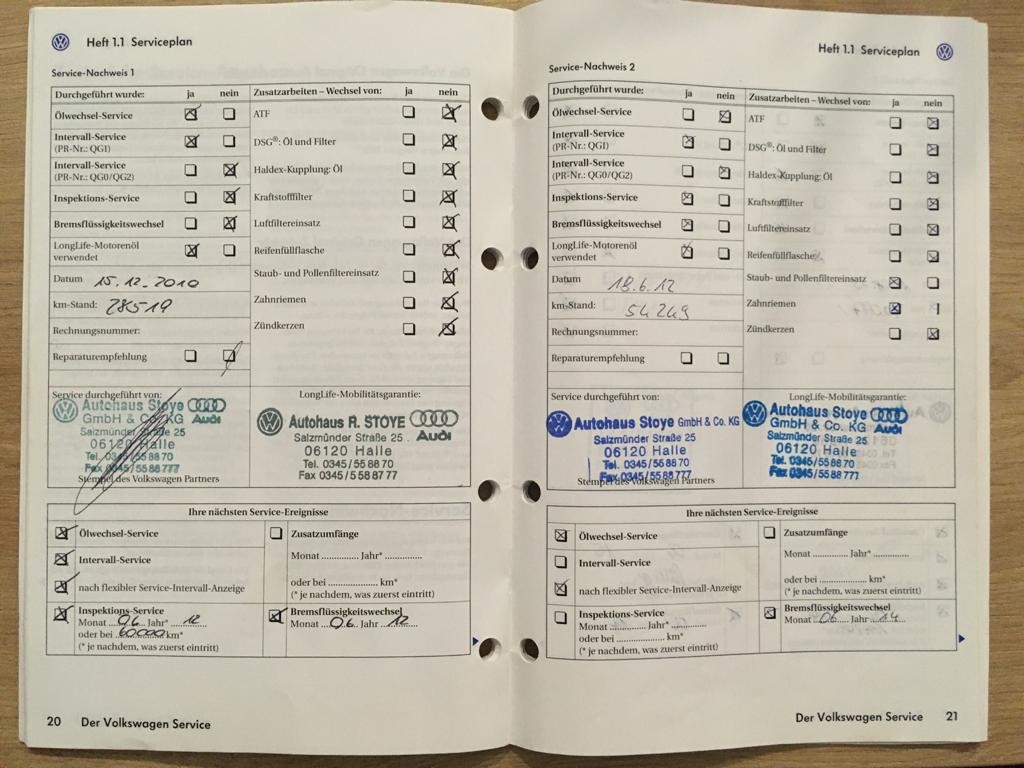 Heft 1.1 Serviceplan
Service-Nachweis 1
Durchgeführt wurde: ja nein
Ölwechsel-Service
Intervall-Service
(PR-Nr.: QG1)
Intervall-Service
(PR-Nr.: QG0/QG2)
Inspektions-Service
Bremsflüssigkeitswechsel
LongLife-Motorenöl
verwendet
Datum 15.12.2010
km-Stand: 28519
Rechnungsnummer:
Reparaturempfehlung
Zusatzarbeiten – Wechsel von: ja nein
ATF
DSG®: Öl und Filter
Haldex-Kupplung: Öl
Kraftstofffilter
Luftfiltereinsatz
Reifenfüllflasche
Staub- und Pollenfiltereinsatz
Zahnriemen
Zündkerzen
Service durchgeführt von:
Autohaus Stoye
GmbH & Co. KG Audi
Salzmünder Straße 25
06120 Halle
Tel. 0345/55 88 70
Fax 0345/55 88 777
Stempel des Volkswagen Partners
LongLife-Mobilitätsgarantie:
Autohaus R. STOYE
Salzmünder Straße 25 Audi
06120 Halle
Tel. 0345/55 88 70
Fax 0345/55 88 777
Ihre nächsten Service-Ereignisse
Ölwechsel-Service
Intervall-Service
nach flexibler Service-Intervall-Anzeige
Inspektions-Service
Monat ....06.. Jahr* ...12
oder bei ..60000. km*
(* je nachdem, was zuerst eintritt)
Zusatzumfänge
Monat .............. Jahr* ..............
oder bei ................... km*
(* je nachdem, was zuerst eintritt)
Bremsflüssigkeitswechsel
Monat ...06.. Jahr ..12..
20 Der Volkswagen Service
Heft 1.1 Serviceplan
Service-Nachweis 2
Durchgeführt wurde: ja nein
Ölwechsel-Service
Intervall-Service
(PR-Nr.: QG1)
Intervall-Service
(PR-Nr.: QG0/QG2)
Inspektions-Service
Bremsflüssigkeitswechsel
LongLife-Motorenöl
verwendet
Datum 18.6.12
km-Stand: 54249
Rechnungsnummer:
Reparaturempfehlung
Zusatzarbeiten – Wechsel von: ja nein
ATF
DSG®: Öl und Filter
Haldex-Kupplung: Öl
Kraftstofffilter
Luftfiltereinsatz
Reifenfüllflasche
Staub- und Pollenfiltereinsatz
Zahnriemen
Zündkerzen
Service durchgeführt von:
Autohaus Stoye GmbH & Co. KG
Salzmünder Straße 25
06120 Halle
Tel. 0345/55 88 70
Fax 0345/55 88 777
Stempel des Volkswagen Partners
LongLife-Mobilitätsgarantie:
Autohaus Stoye
GmbH & Co. KG Audi
Salzmünder Straße 25
06120 Halle
Tel. 0345/55 88 70
Fax 0345/55 88 777
Ihre nächsten Service-Ereignisse
Ölwechsel-Service
Intervall-Service
nach flexibler Service-Intervall-Anzeige
Inspektions-Service
Monat .............. Jahr* ..............
oder bei ................... km*
(* je nachdem, was zuerst eintritt)
Zusatzumfänge
Monat .............. Jahr* ..............
oder bei ................... km*
(* je nachdem, was zuerst eintritt)
Bremsflüssigkeitswechsel
Monat ...06.. Jahr ..14..
Der Volkswagen Service 21